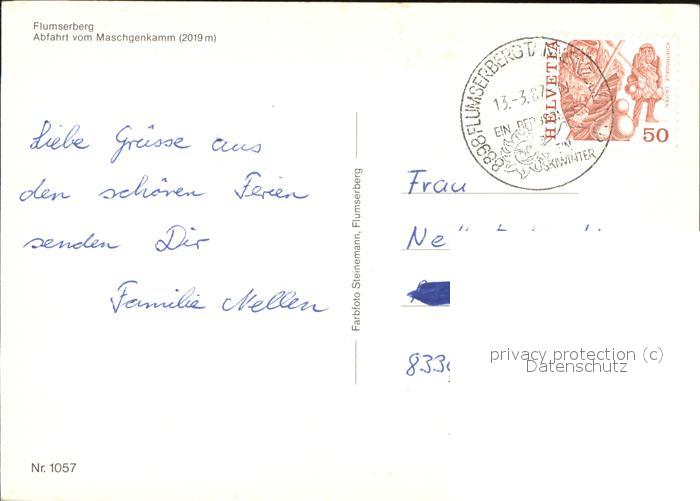 Flumserberg
Abfahrt vom Maschgenkamm (2019 m)
Liebe Grüsse aus
den schönen Ferien
senden Dir
Familie Nellen
Nr. 1057
Farbfoto Steinemann, Flumserberg
8898 FLUMSERBERG
13.-3.87
EIN
SKIWINTER
HELVETIA
50
Frau
privacy protection (c)
Datenschutz